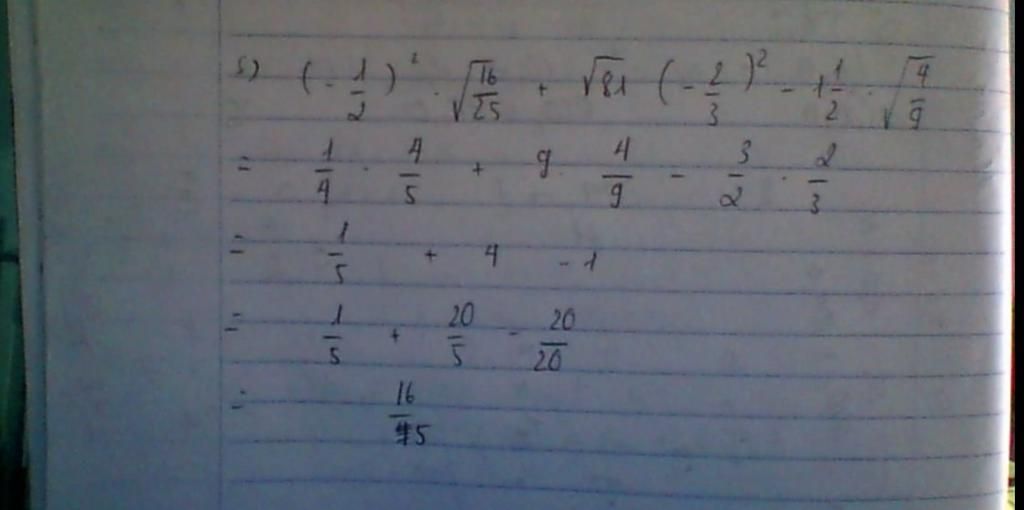 5) (-1/2)² · √(16/25) + √81 (-2/3)² - 1 1/2 · √(4/9)
= 1/4 · 4/5 + 9 · 4/9 - 3/2 · 2/3
= 1/5 + 4 - 1
= 1/5 + 20/5 - 20/20
= 16/5